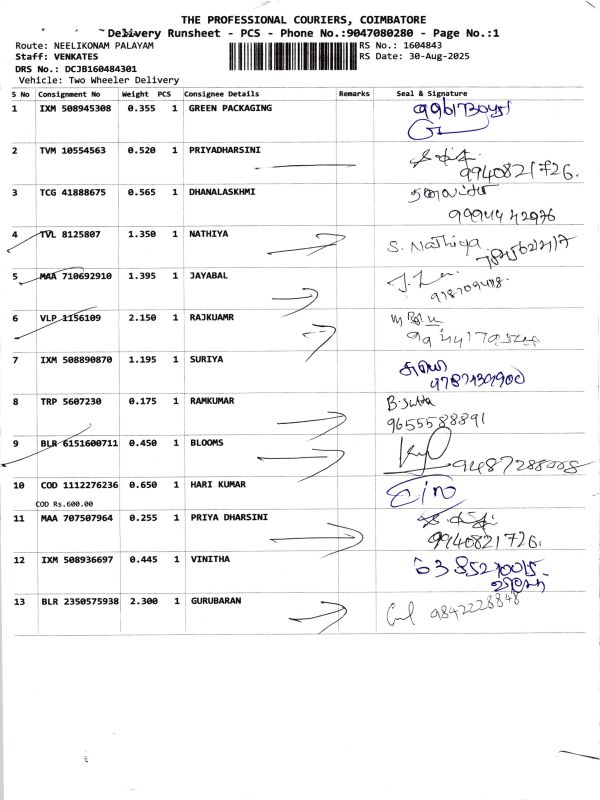 THE PROFESSIONAL COURIERS, COIMBATORE
Delivery Runsheet - PCS - Phone No.:9047080280 - Page No.:1
Route: NEELIKONAM PALAYAM
RS No.: 1604843
Staff: VENKATES
RS Date: 30-Aug-2025
DRS No.: DCJB160484301
Vehicle: Two Wheeler Delivery
S No Consignment No Weight PCS Consignee Details Remarks Seal & Signature
1 IXM 508945308 0.355 1 GREEN PACKAGING
2 TVM 10554563 0.520 1 PRIYADHARSINI
9940821726.
3 TCG 41888675 0.565 1 DHANALASKHMI
4 TVL 8125807 1.350 1 NATHIYA S. Nathiya
5 MAA 710692910 1.395 1 JAYABAL
6 VLP 1156109 2.150 1 RAJKUAMR
7 IXM 508890870 1.195 1 SURIYA
8 TRP 5607230 0.175 1 RAMKUMAR
9655588891
9 BLR 6151600711 0.450 1 BLOOMS
10 COD 1112276236 0.650 1 HARI KUMAR
COD Rs.600.00
11 MAA 707507964 0.255 1 PRIYA DHARSINI
9940821726.
12 IXM 508936697 0.445 1 VINITHA
13 BLR 2350575938 2.300 1 GURUBARAN 9842228848